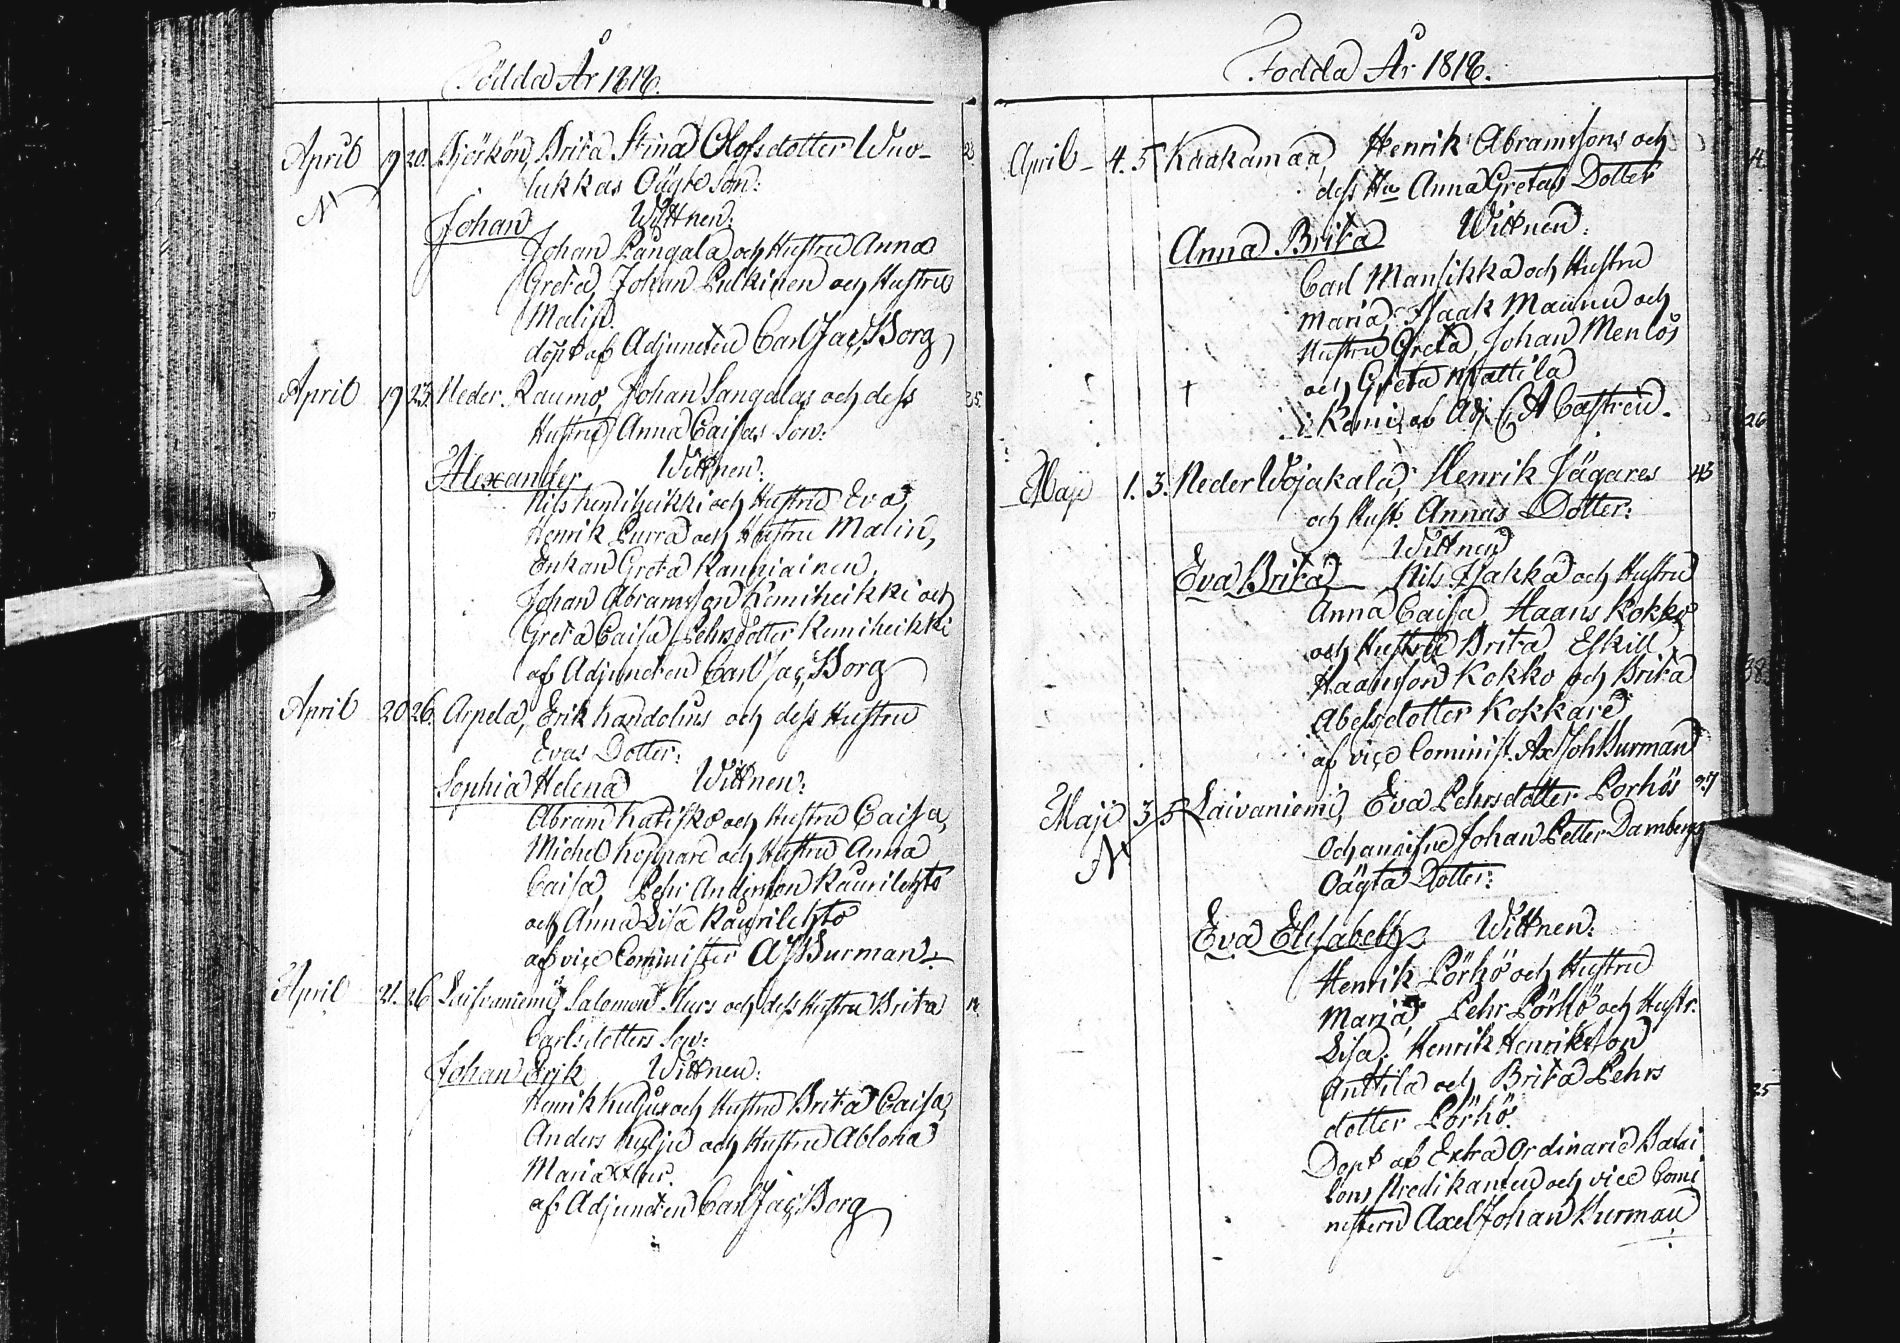 Födda År 1818.
April 19 20. Björkön, Brita Stina Olofsdotter Wuo-
lukkas Oägte Son:
Johan Wittnen:
Johan Pångala och Hustru Anna
Greta, Johan Pulkinen och Hustru
Malin.
döpt af Adjuncten Carl Jac. Borg
April 19 23. Neder Raumo, Johan Sangalas och dess 25.
Hustru Anna Caisas Son:
Alexander Wittnen:
Nils Kemiheikki och Hustru Eva,
Henrik Purra och Hustru Malin,
Enkan Greta Kanniainen,
Johan Abramsson Kemiheikki och
Greta Caisa Pehrsdotter Kemiheikki
af Adjuncten Carl Jac. Borg
April 20 26. Arpela, Erik Kandelins och dess Hustru
Evas Dotter:
Sophia Helena Wittnen:
Abram Katisko och Hustru Caisa,
Michel Koppare och Hustru Anna
Caisa, Pehr Andersson Raurilehto
och Anna Lisa Raurilehto
af vice Comminister A J Burman.
April 21. 26. Laivaniemi, Salomon Slurs och dess Hustru Brita
Carlsdotters Son:
Johan Erik Wittnen:
Henrik Kuljus och Hustru Brita Caisa,
Anders Kulju och Hustru Ablona
Maria
af Adjuncten Carl Jac. Borg
Födda År 1818.
April 4. 5 Kaakamaa, Henrik Abramssons och
dess Hu Anna Gretas Dotter
Anna Brita Wittnen:
Carl Mansikka och Hustru
Maria, Isaak Maunu och
Hustru Greta, Johan Menlös
och Greta Mattila
i Kemi af Adj. C A Castrén.
Maji 1. 3. Neder Wojakala, Henrik Jägares 43
och Hust. Annas Dotter:
Wittnen
Eva Brita Nils Isakka och Hustru
Anna Caisa, Haans Kokko
och Hustru Brita, Eskill
Haansson Kokko och Brita
Abelsdotter Kokkare
af vice Comminist. Ax Joh Burman
Maji 3 5 Laivaniemi, Eva Pehrsdotter Porhös 27
Och Johan Petter Damberg
Oägta Dotter:
Eva Elisabeth Wittnen:
Henrik Pörhö och Hustru
Maria, Pehr Pörhö och Hustr.
Lisa. Henrik Henriksson
Anttila och Brita Pehrs
dotter Pörhö.
Döpt af Extra Ordinarie Batai
lons Predikanten och vice Comi
nistern Axel Johan Burman